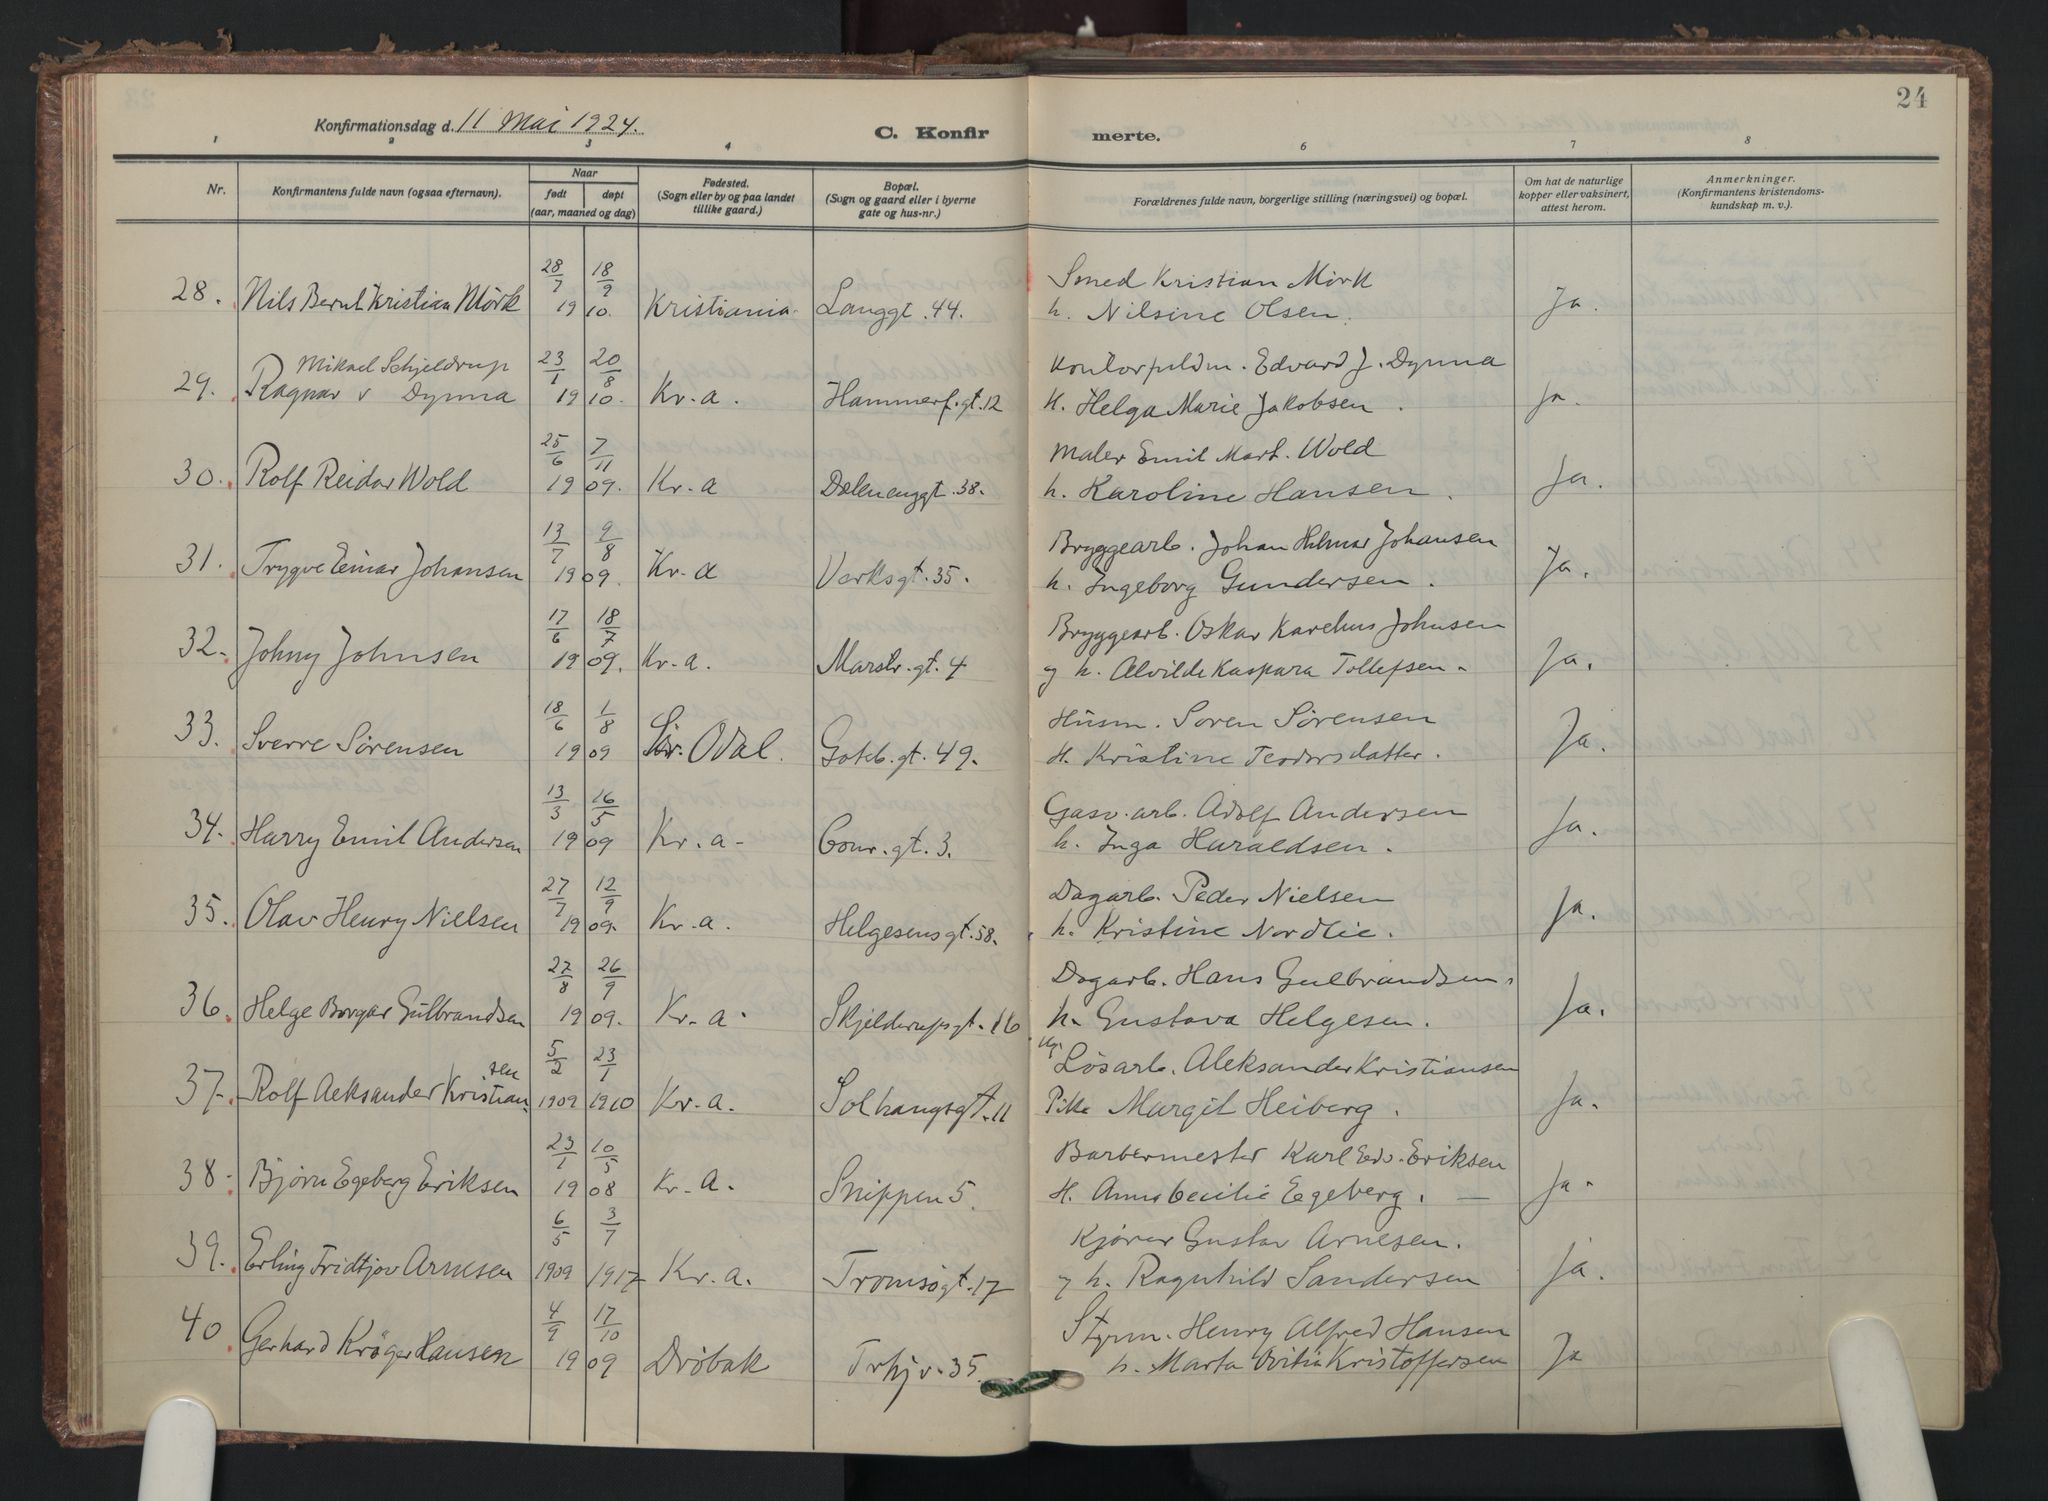 24
Konfirmationsdag d. 11 Mai 1924.
C. Konfirmerte.
1 2 3 4 6 7 8
Nr.
Konfirmantens fulde navn (ogsaa efternavn).
Naar
født døpt
(aar, maaned og dag)
Fødested.
(Sogn eller by og paa landet
tillike gaard.)
Bopæl.
(Sogn og gaard eller i byerne
gate og hus-nr.)
Forældrenes fulde navn, borgerlige stilling (næringsvei) og bopæl.
Om hat de naturlige
kopper eller vaksinert,
attest herom.
Anmerkninger.
(Konfirmantens kristendoms-
kundskap m. v.).
28/7 18/9 Smed Kristian Mörk
28. Nils Bernt Kristian Mörk 19 10. Kristiania. Langgt. 44. h. Nilsine Olsen. Ja.
Mikael Schjeldrup 23/1 20/8 Kontorfuldm. Edvard J. Dynna
29. Ragnar v Dynna 19 10. Kr.a. Hammerf.gt.12 h. Helga Marie Jakobsen. Ja.
25/6 7/11 Maler Emil Mart. Wold
30. Rolf Reidar Wold 19 09. Kr.a Dælenenggt.38. h. Karoline Hansen. Ja.
13/7 9/8 Bryggearb. Johan Hilmar Johansen
31. Trygve Einar Johansen 19 09. Kr.a Verksgt.35. h. Ingeborg Gundersen. Ja.
17/6 18/7 Bryggearb. Oskar Karelius Johnsen
32. Johny Johnsen 19 09. Kr.a. Marstr.gt.4 og h. Alvilde Kaspara Tollefsen. Ja.
18/6 1/8 Husm. Soren Sörensen
33. Sverre Sörensen 19 09 Sör. Odal. Goteb.gt.49. H. Kristine Teodorsdatter. Ja.
13/3 16/5 Gasv.arb. Adolf Andersen
34. Harry Emil Andersen 19 09 Kr.a- Conr.gt.3. h. Inga Haraldsen. Ja.
27/7 12/9 Dagarb. Peder Nielsen
35. Olav Henry Nielsen 19 09. Kr.a. Helgesensgt.58. h. Kristine Nordlie. Ja.
27/8 26/9 Dagarb. Hans Gulbrandsen,
36. Helge Borgar Gulbrandsen 19 09. Kr.a. Skjelderupsgt.16 h. Gustava Helgesen. Ja.
5/2 23/1 Ug. Lösarb. Aleksander Kristiansen
37. Rolf Aeksander Kristiansen 1909 1910 Kr.a. Solhaugsgt.11 Pike Margit Heiberg. Ja.
23/1 10/5 Barbermester Karl Edv. Eriksen
38- Björn Egeberg Eriksen 19 08 Kr.a. Snippen 5. H. Anna Cecilie Egeberg. — Ja.
6/5 3/7 Kjörer Gustav Arnesen.
39. Erling Fridtjov Arnesen 1909 1917 Kr.a. Tromsögt.17 og h. Ragnhild Sandersen ja.
4/9 17/10 Styrm. Henry Alfred Hansen
40 Gerhard Kröger Hansen 19 09 Dröbak Trhjv.35. h. Marta Kristoffersen Ja